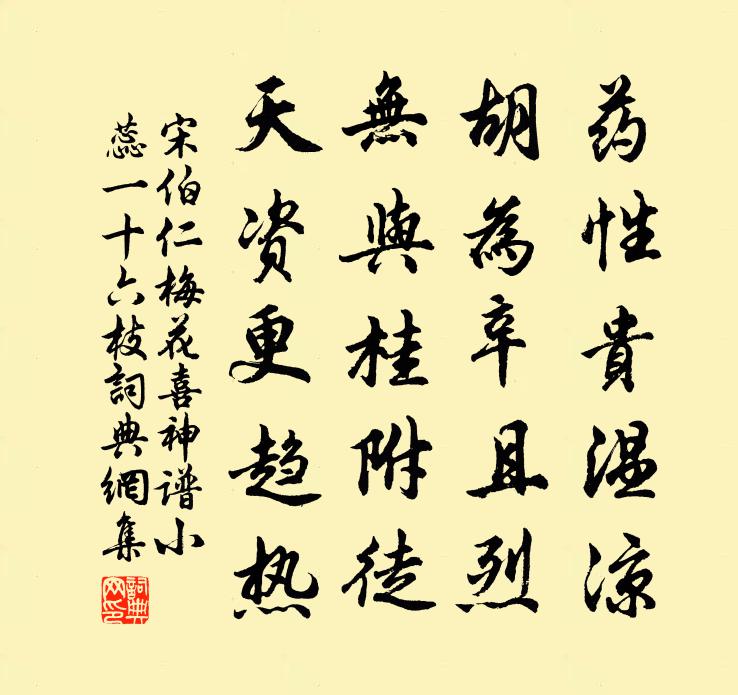 药性貴温涼
胡為辛且烈
無與桂附徒
天资更趋热
宋伯仁梅花喜神谱小
蕊一十六枝詞典網集
詞典網印